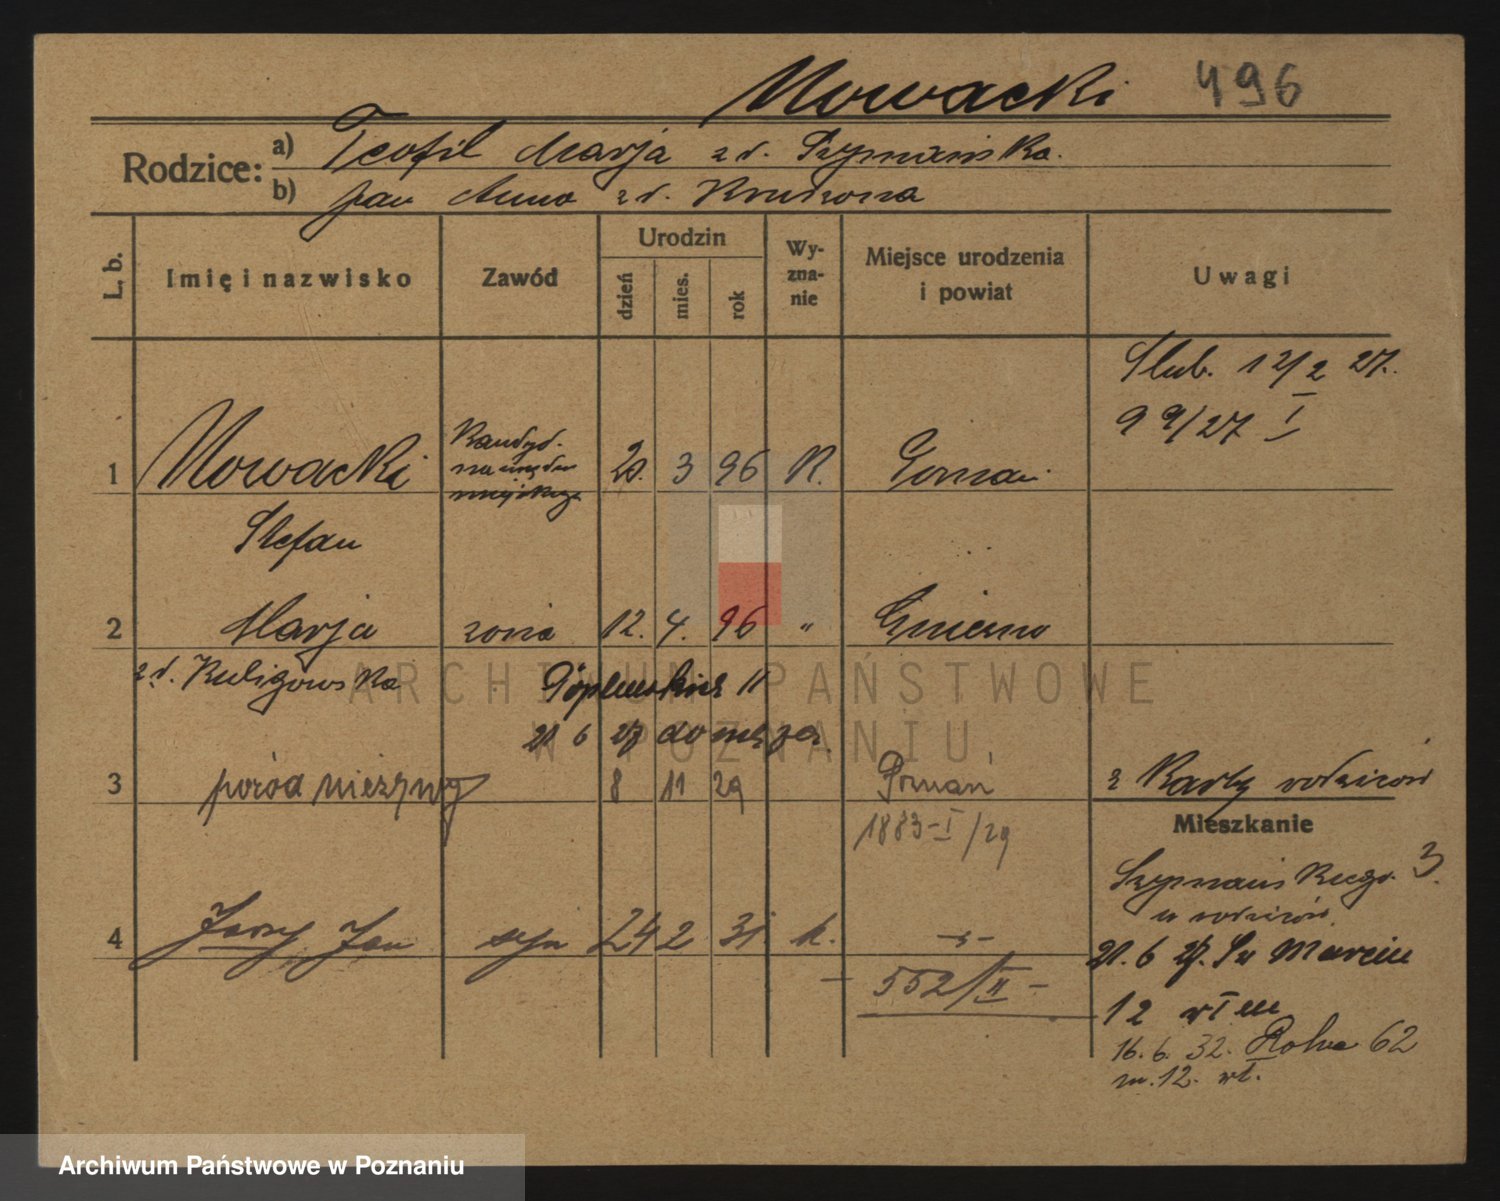 Nowacki 496
Rodzice: a) Teofil Marja zd. Szymańska.
b) Jan Anna zd.
L. b. Imię i nazwisko Zawód Urodzin dzień mies. rok Wyznanie Miejsce urodzenia i powiat Uwagi
Ślub. 12/2 27.
99/27 I
1 Nowacki Kandyd. 20. 3 96 K.
Stefan
2 Marja żona 12. 4. 96 " Gniezno
zd. Kuligowska
21 6 27 do męża.
3 poród nieżywy 8 11 29 Poznań z Karty rodziców
1883-I/29
Mieszkanie
Szymańskiego 3.
u rodziców.
4 Jerzy Jan syn 24 2 31 k. -"-
21. 6 27. Św Marcin
552/II
12
16. 6. 32. Rolna 62
m. 12. wł.
ARCHIWUM PAŃSTWOWE
W POZNANIU
Archiwum Państwowe w Poznaniu